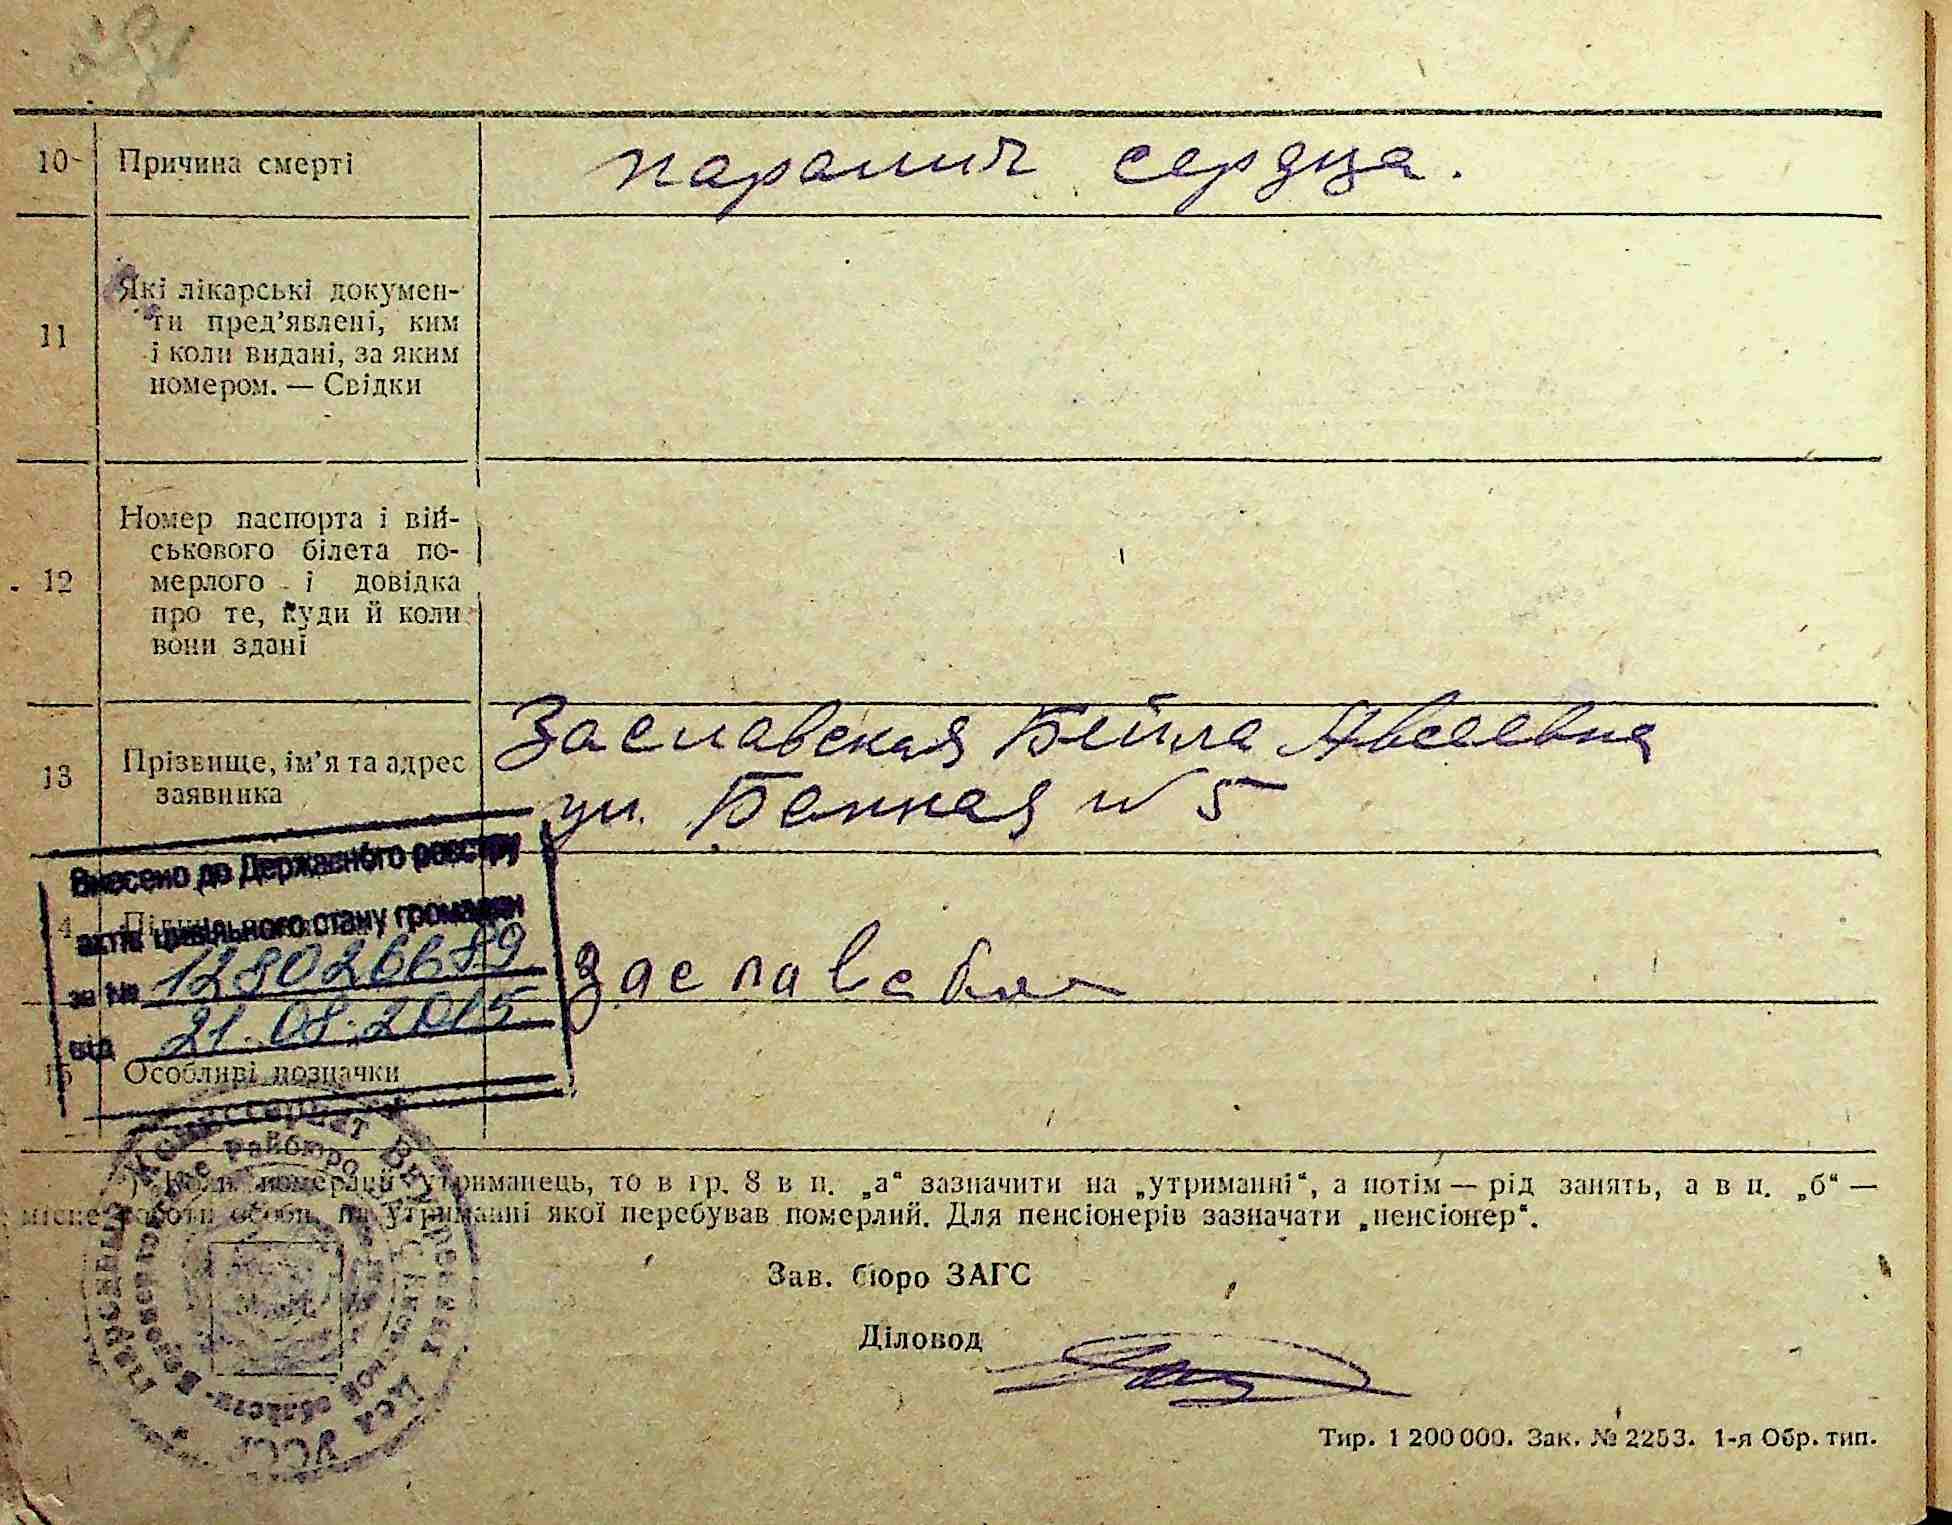 10 Причина смерті паралич сердца.
11 Які лікарські докумен-
ти пред’явлені, ким
і коли видані, за яким
номером. — Свідки
12 Номер паспорта і вій-
ськового білета по-
мерлого і довідка
про те, куди й коли
вони здані
13 Прізвище, ім’я та адрес
заявника
Заславская Бейла Авсеевна
ул. Банная №5
Внесено до Державного реєстру
актів цивільного стану громадян
за № 128026689
від 21.08.2015
14 Заславская
15 Особливі позначки
утриманець, то в гр. 8 в п. „а“ зазначити на „утриманні“, а потім — рід занять, а в п. „б“ —
місце роботи особи, на утриманні якої перебував померлий. Для пенсіонерів зазначати „пенсіонер“.
Зав. бюро ЗАГС
Діловод
Тир. 1 200 000. Зак. № 2253. 1-я Обр. тип.
Комиссариат Внутренних Дел УССР
Райбюро
области